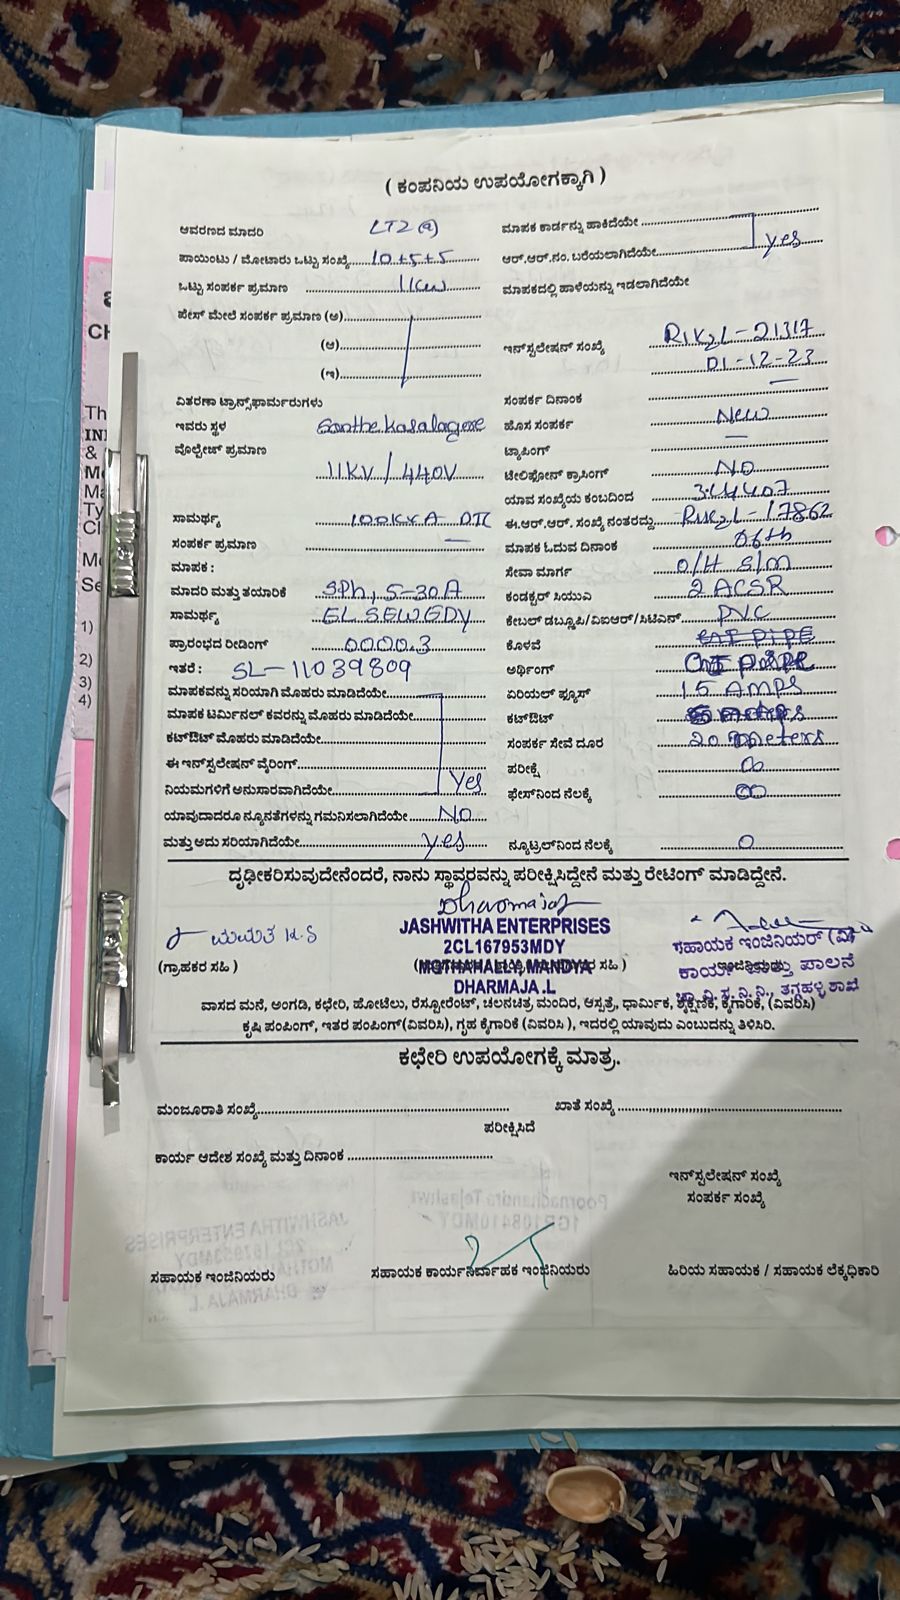 ( ಕಂಪನಿಯ ಉಪಯೋಗಕ್ಕಾಗಿ )
ಆವರಣದ ಮಾದರಿ LT2(a)
ಪಾಯಿಂಟು / ಮೋಟಾರು ಒಟ್ಟು ಸಂಖ್ಯೆ 10+5+5
ಒಟ್ಟು ಸಂಪರ್ಕ ಪ್ರಮಾಣ 1KW
ಫೇಸ್ ಮೇಲೆ ಸಂಪರ್ಕ ಪ್ರಮಾಣ (ಅ)
(ಆ)
(ಇ)
ವಿತರಣಾ ಟ್ರಾನ್ಸ್‌ಫಾರ್ಮರುಗಳು
ಇವರು ಸ್ಥಳ Santhekasalagere
ವೋಲ್ಟೇಜ್ ಪ್ರಮಾಣ
11KV / 440V
ಸಾಮರ್ಥ್ಯ 100KVA DTC
ಸಂಪರ್ಕ ಪ್ರಮಾಣ —
ಮಾಪಕ :
ಮಾದರಿ ಮತ್ತು ತಯಾರಿಕೆ SPh, 5-30A
ಸಾಮರ್ಥ್ಯ EL SEWEDY
ಪ್ರಾರಂಭದ ರೀಡಿಂಗ್ 0000.3
ಇತರೆ : SL-11039809
ಮಾಪಕವನ್ನು ಸರಿಯಾಗಿ ಮೊಹರು ಮಾಡಿದೆಯೇ
ಮಾಪಕ ಟರ್ಮಿನಲ್ ಕವರನ್ನು ಮೊಹರು ಮಾಡಿದೆಯೇ
ಕಟ್‌ಔಟ್ ಮೊಹರು ಮಾಡಿದೆಯೇ
ಈ ಇನ್‌ಸ್ಟಲೇಷನ್ ವೈರಿಂಗ್
ನಿಯಮಗಳಿಗೆ ಅನುಸಾರವಾಗಿದೆಯೇ Yes
ಯಾವುದಾದರೂ ನ್ಯೂನತೆಗಳನ್ನು ಗಮನಿಸಲಾಗಿದೆಯೇ NO
ಮತ್ತು ಅದು ಸರಿಯಾಗಿದೆಯೇ yes
ಮಾಪಕ ಕಾರ್ಡನ್ನು ಹಾಕಿದೆಯೇ
ಆರ್.ಆರ್.ನಂ. ಬರೆಯಲಾಗಿದೆಯೇ yes
ಮಾಪಕದಲ್ಲಿ ಹಾಳೆಯನ್ನು ಇಡಲಾಗಿದೆಯೇ
ಇನ್‌ಸ್ಟಲೇಷನ್ ಸಂಖ್ಯೆ R1K2L-21317
01-12-23
ಸಂಪರ್ಕ ದಿನಾಂಕ —
ಹೊಸ ಸಂಪರ್ಕ New
ಟ್ಯಾಪಿಂಗ್ —
ಟೆಲಿಫೋನ್ ಕ್ರಾಸಿಂಗ್ NO
ಯಾವ ಸಂಖ್ಯೆಯ ಕಂಬದಿಂದ
ಈ.ಆರ್.ಆರ್. ಸಂಖ್ಯೆ ನಂತರದ್ದು R1K2L-17862
ಮಾಪಕ ಓದುವ ದಿನಾಂಕ 06th
ಸೇವಾ ಮಾರ್ಗ O/H S/M
ಕಂಡಕ್ಟರ್ ಸಿಯುವಿ 2 ACSR
ಕೇಬಲ್ ಡಬ್ಲೂಪಿ/ವಿಐಆರ್/ಸಿಟಿಎಸ್ PVC
ಕೊಳವೆ
ಅರ್ಥಿಂಗ್
ಏರಿಯಲ್ ಫ್ಯೂಸ್ 15 AMPS
ಕಟ್‌ಔಟ್
ಸಂಪರ್ಕ ಸೇವೆ ದೂರ 20 meters
ಪರೀಕ್ಷೆ ∞
ಫೇಸ್‌ನಿಂದ ನೆಲಕ್ಕೆ ∞
ನ್ಯೂಟ್ರಲ್‌ನಿಂದ ನೆಲಕ್ಕೆ 0
ದೃಢೀಕರಿಸುವುದೇನೆಂದರೆ, ನಾನು ಸ್ಥಾವರವನ್ನು ಪರೀಕ್ಷಿಸಿದ್ದೇನೆ ಮತ್ತು ರೇಟಿಂಗ್ ಮಾಡಿದ್ದೇನೆ.
Dharmaja
ಮಮತ K.S
JASHWITHA ENTERPRISES
2CL167953MDY
MOTHAHALLY, MANDYA
DHARMAJA .L
(ಗ್ರಾಹಕರ ಸಹಿ )
ಸಹಾಯಕ ಇಂಜಿನಿಯರ್ (ವಿ)
ಕಾರ್ಯ ಮತ್ತು ಪಾಲನೆ
ಚಾ.ವಿ.ಸ.ನಿ.ನಿ., ತಗ್ಗಹಳ್ಳಿ ಶಾಖೆ
ವಾಸದ ಮನೆ, ಅಂಗಡಿ, ಕಛೇರಿ, ಹೋಟೆಲು, ರೆಸ್ಟೋರೆಂಟ್, ಚಲನಚಿತ್ರ ಮಂದಿರ, ಆಸ್ಪತ್ರೆ, ಧಾರ್ಮಿಕ, ಶೈಕ್ಷಣಿಕ, ಕೈಗಾರಿಕೆ, (ವಿವರಿಸಿ)
ಕೃಷಿ ಪಂಪಿಂಗ್, ಇತರ ಪಂಪಿಂಗ್(ವಿವರಿಸಿ), ಗೃಹ ಕೈಗಾರಿಕೆ (ವಿವರಿಸಿ ), ಇದರಲ್ಲಿ ಯಾವುದು ಎಂಬುದನ್ನು ತಿಳಿಸಿರಿ.
ಕಛೇರಿ ಉಪಯೋಗಕ್ಕೆ ಮಾತ್ರ.
ಮಂಜೂರಾತಿ ಸಂಖ್ಯೆ
ಖಾತೆ ಸಂಖ್ಯೆ
ಪರೀಕ್ಷಿಸಿದೆ
ಕಾರ್ಯ ಆದೇಶ ಸಂಖ್ಯೆ ಮತ್ತು ದಿನಾಂಕ
ಇನ್‌ಸ್ಟಲೇಷನ್ ಸಂಖ್ಯೆ
ಸಂಪರ್ಕ ಸಂಖ್ಯೆ
ಸಹಾಯಕ ಇಂಜಿನಿಯರು
ಸಹಾಯಕ ಕಾರ್ಯನಿರ್ವಾಹಕ ಇಂಜಿನಿಯರು
ಹಿರಿಯ ಸಹಾಯಕ / ಸಹಾಯಕ ಲೆಕ್ಕಧಿಕಾರಿ